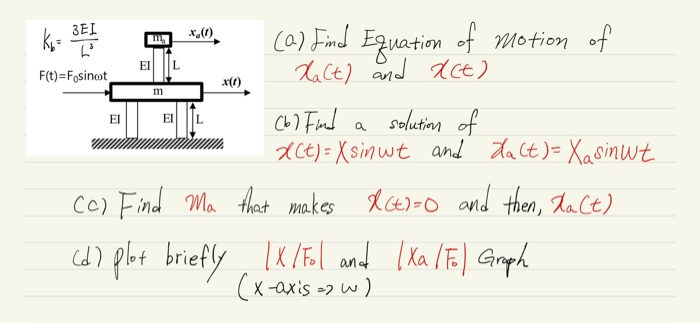 K_b = 3EI / L³
mₐ xₐ(t)
EI L
F(t)=F₀sinωt
x(t)
m
EI EI L
(a) Find Equation of motion of
xₐ(t) and x(t)
(b) Find a solution of
x(t)=X sinwt and xₐ(t)=Xₐsinwt
(c) Find Mₐ that makes x(t)=0 and then, xₐ(t)
(d) plot briefly |X/F₀| and |Xₐ/F₀| Graph
(x-axis => w)